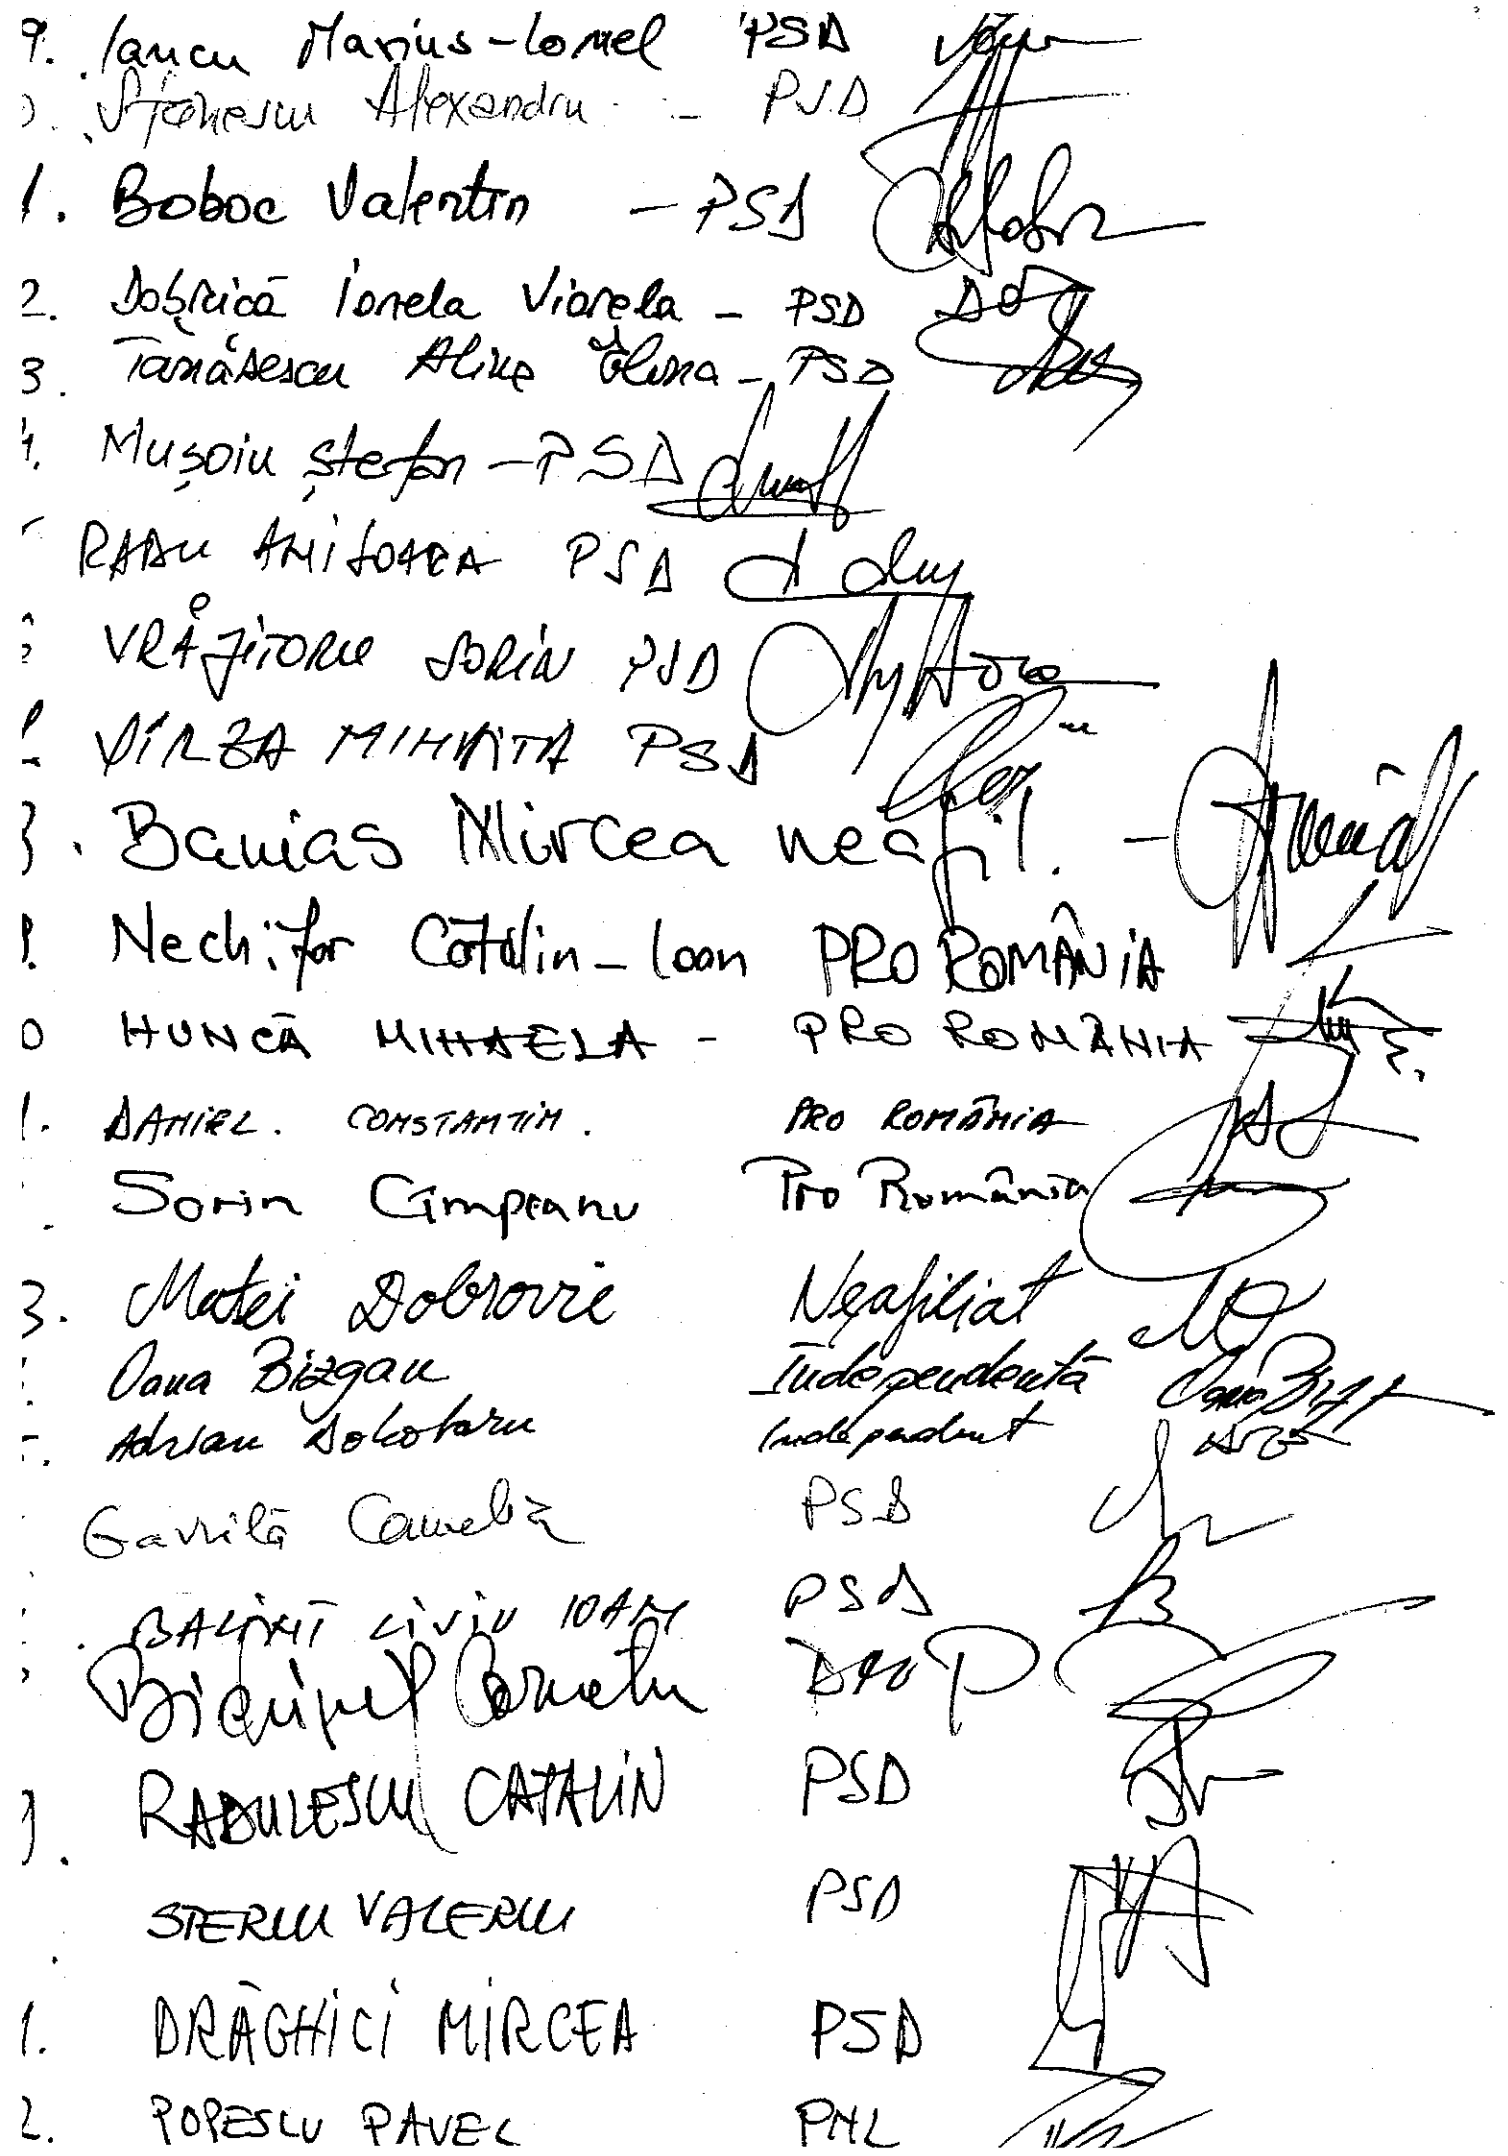 9. Iancu Marius-Ionel PSD
Stanescu Alexandru - PSD
1. Boboc Valentin - PSD
2. Dobrică Ionela Viorela - PSD
3. Tănăsescu Alina Elena - PSD
4. Mușoiu Ștefan - PSD
RADU ANIȘOARA PSD
VRĂJITORU SORIN PSD
VÎRZA MIHĂIȚĂ PSD
Banias Mircea neafil. -
Nechifor Cătălin-Ioan PRO ROMÂNIA
0 HUNCĂ MIHAELA - PRO ROMÂNIA
1. DANIEL. CONSTANTIN. PRO ROMÂNIA
Sorin Cîmpeanu Pro România
3. Matei Dobrovie Neafiliat
Oana Bizgan Independentă Oana Bizgan
Adrian Dohotaru Independent
Gavrilă Camelia PSD
BALINT LIVIU IOAN PSD
Bichineț Corneliu
RADULESCU CATALIN PSD
STERIU VALERIU PSD
1. DRĂGHICI MIRCEA PSD
2. POPESCU PAVEL PNL